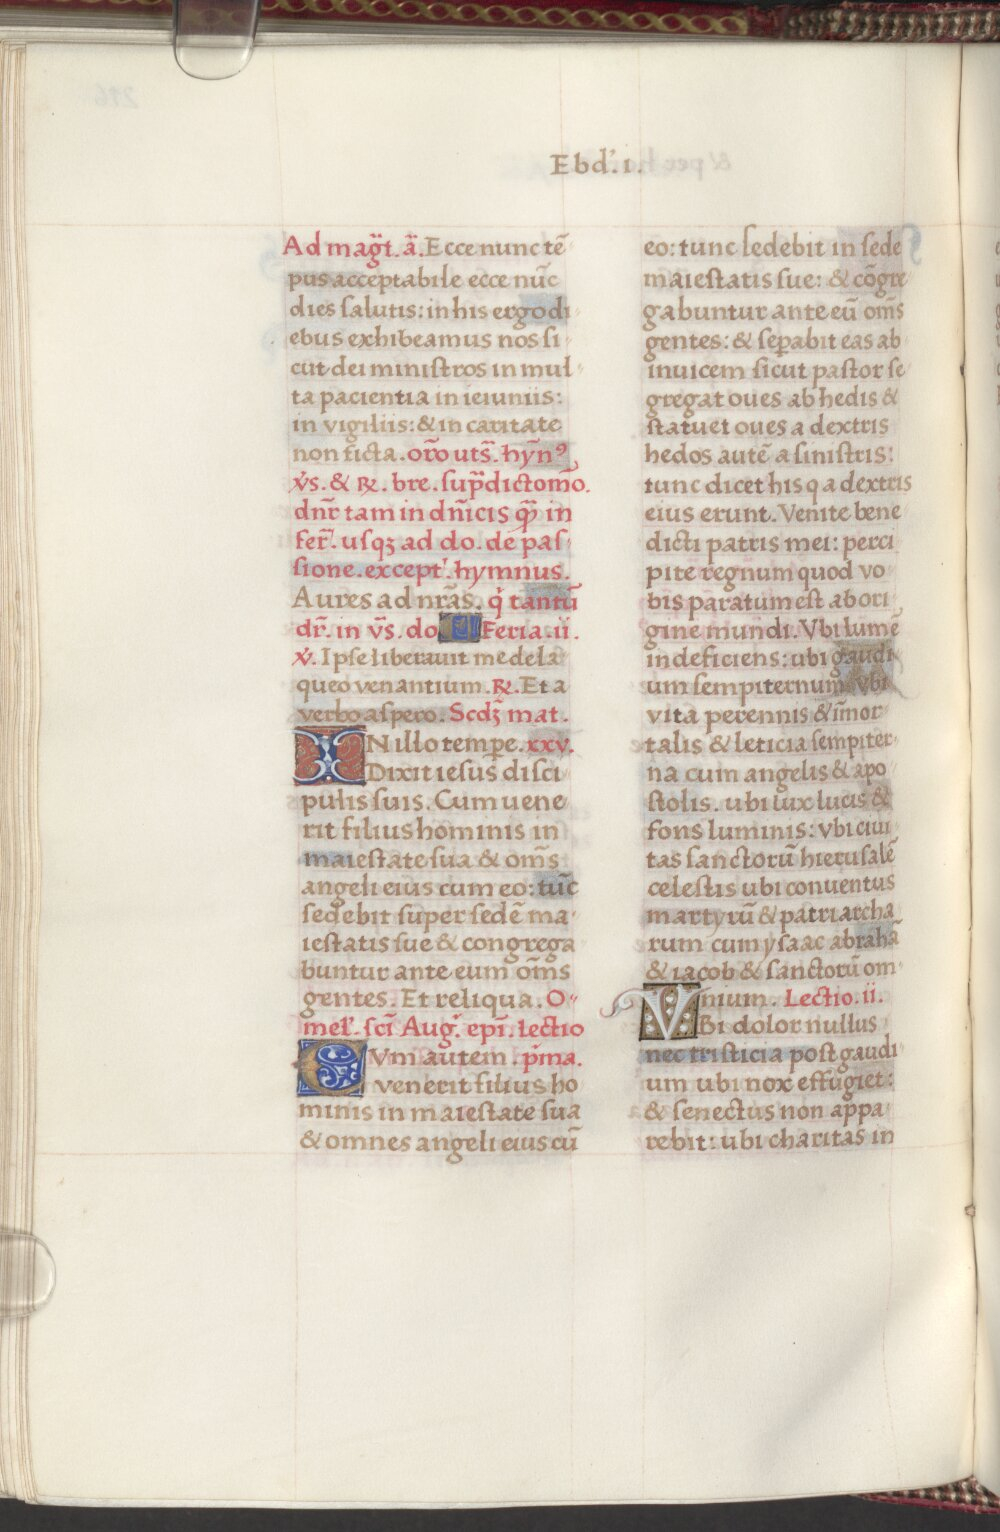 Ebd'. i.
Ad mag̅t. a̅. Ecce nunc te̅
pus acceptabile ecce nu̅c
dies salutis: in his ergo di
ebus exhibeamus nos si
cut dei ministros in mul
ta paciencia in ieiuniis:
in vigiliis: & in caritate
non ficta. oro̅ ut s̅. hyn̅9
v̇s. & ℞. bre. sup̅dicto mo̅.
dn̅r tam in dn̅icis qua̅ in
fer̅. usqꝫ ad do. de pas
sione. except'. hymnus.
Aures ad nr̅as. q' tantu̅
dr̅. in v̅s. do Feria. ii.
v̇. Ipse liberauit me de la
queo venantium. ℞. Et a
verbo aspero. Scdꝫ mat.
IN illo tempe̅. xxv.
Dixit iesus disci
pulis suis. Cum uene
rit filius hominis in
maiestate sua & om̅s
angeli eius cum eo: tu̅c
sedebit super sede̅ ma
iestatis sue & congrega
buntur ante eum om̅s
gentes. Et reliqua. O
mel'. sci̅ Aug'. epi̅. lectio
CVm autem. p̅ma.
venerit filius ho
minis in maiestate sua
& omnes angeli eius cu̅
eo: tunc sedebit in sede
maiestatis sue: & co̅gre
gabuntur ante eu̅ om̅s
gentes: & sep̅abit eas ab
inuicem sicut pastor se
gregat oues ab hedis &
statuet oues a dextris
hedos aute̅ a sinistris:
tunc dicet his q a dextris
eius erunt. Venite bene
dicti patris mei: perci
pite regnum quod vo
bis paratum est ab ori
gine mundi. Vbi lume̅
indeficiens: ubi gaudi
um sempiternum vbi
vita perennis & i̅mor
talis & leticia sempiter
na cum angelis & apo
stolis. ubi lux lucis &
fons luminis: vbi ciui
tas sanctoru̅ hierusale̅
celestis ubi conuentus
martyru̅ & patriarcha
rum cum ysaac abraha̅
& iacob & sanctoru̅ om
nium. Lectio. ii.
VBi dolor nullus
nec tristicia post gaudi
um ubi nox effugiet:
& senectus non appa
rebit: ubi charitas in